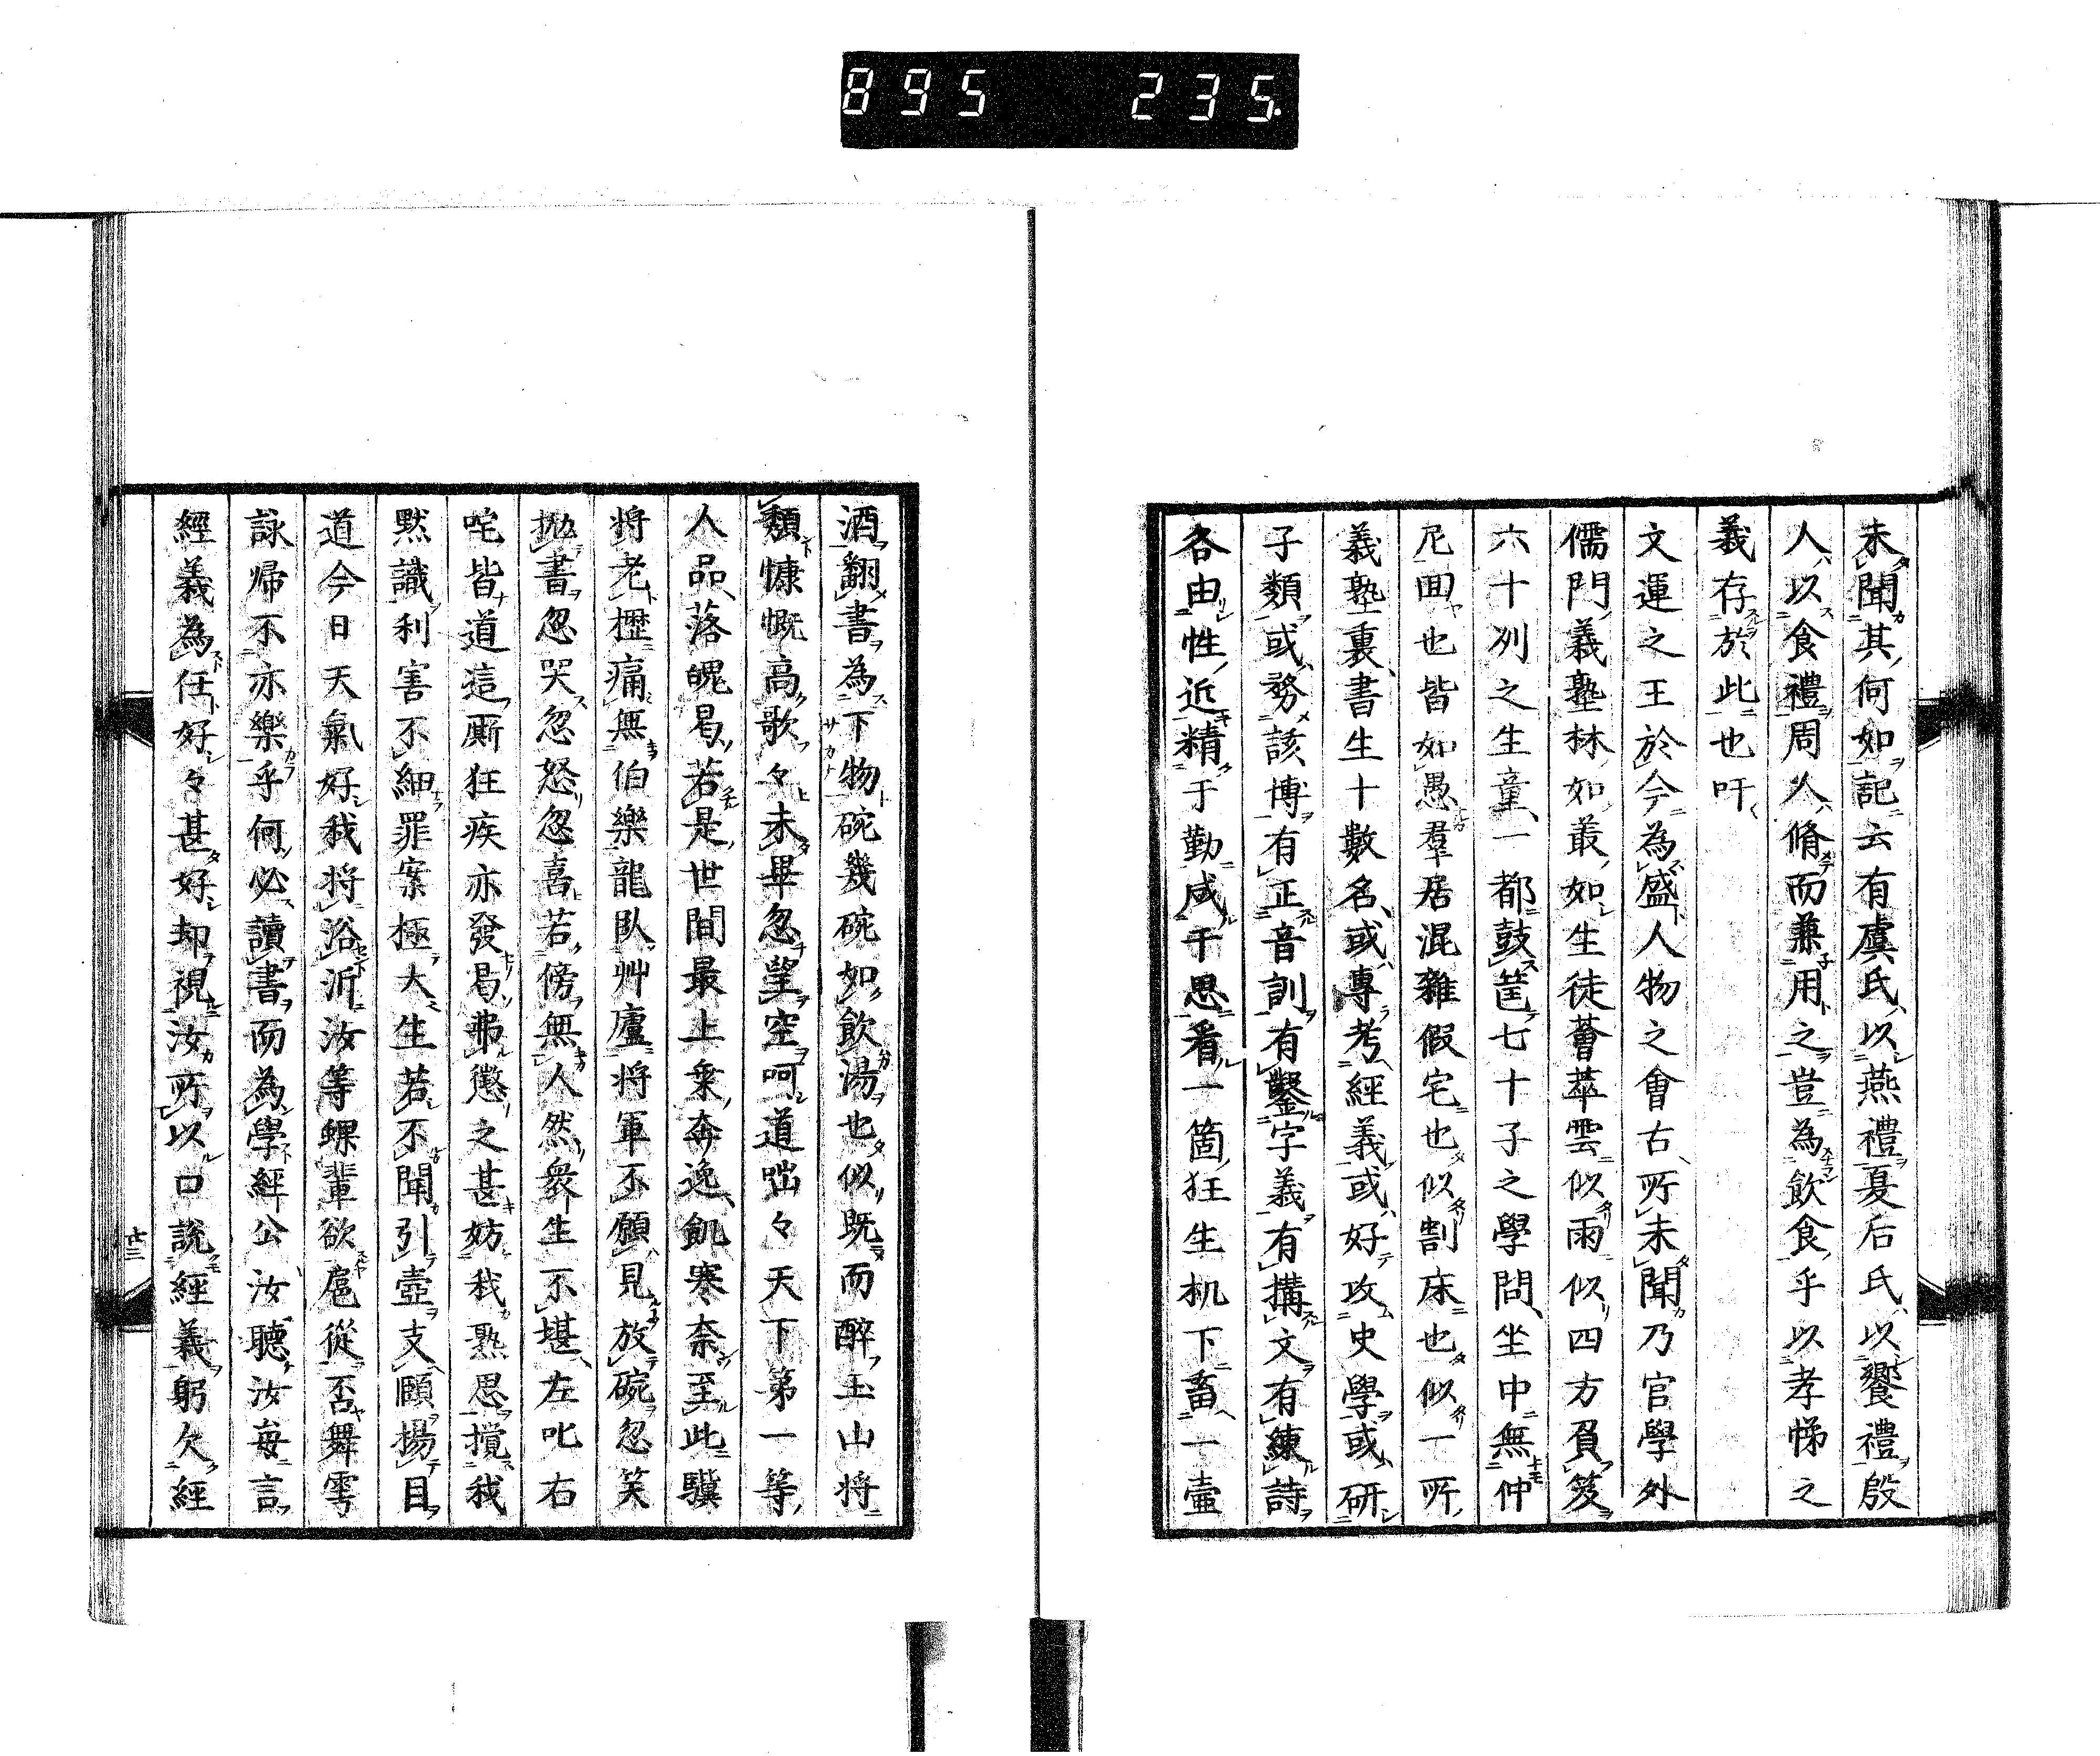 895 235
未聞其何如記云有虞氏以燕禮夏后氏以饗禮殷
人以食禮周人脩而兼用之豈為飲食乎以孝悌之
義存於此也吁
文運之王於今為盛人物之會古所未聞乃官學外
儒門義塾林如叢如生徒薈萃雲似雨似四方負笈
六十列之生童一都鼓篋七十子之學問坐中無仲
尼回也皆如愚羣居混雜假宅也似割床也似一所
義塾裏書生十數名或專考經義或好攻史學或研
子類或務該博有正音訓有鑿字義有搆文有練詩
各由性近精于勤咸于思看一箇狂生机下畜一壷
酒翻書為下物碗幾碗如飲湯也似既而醉玉山将
頽慷慨高歌々未畢忽望空呵道咄々天下第一等
人品落魄曷若是世間最上乗奔逸飢寒奈至此驥
将老櫪痛無伯樂龍臥艸廬将軍不願見放碗忽笑
抛書忽哭忽怒忽喜若傍無人然衆生不堪左叱右
咤皆道這厮狂疾亦發曷弗懲之甚妨我熟思攪我
黙識利害不細罪案極大生若不聞引壺支頤揚目
道今日天氣好我将浴沂汝等螺輩欲扈從否舞雩
詠帰不亦樂乎何必讀書而為學經公汝聴汝毎言
經義為任好々甚好却視汝所以口說經義躬欠經
廿三